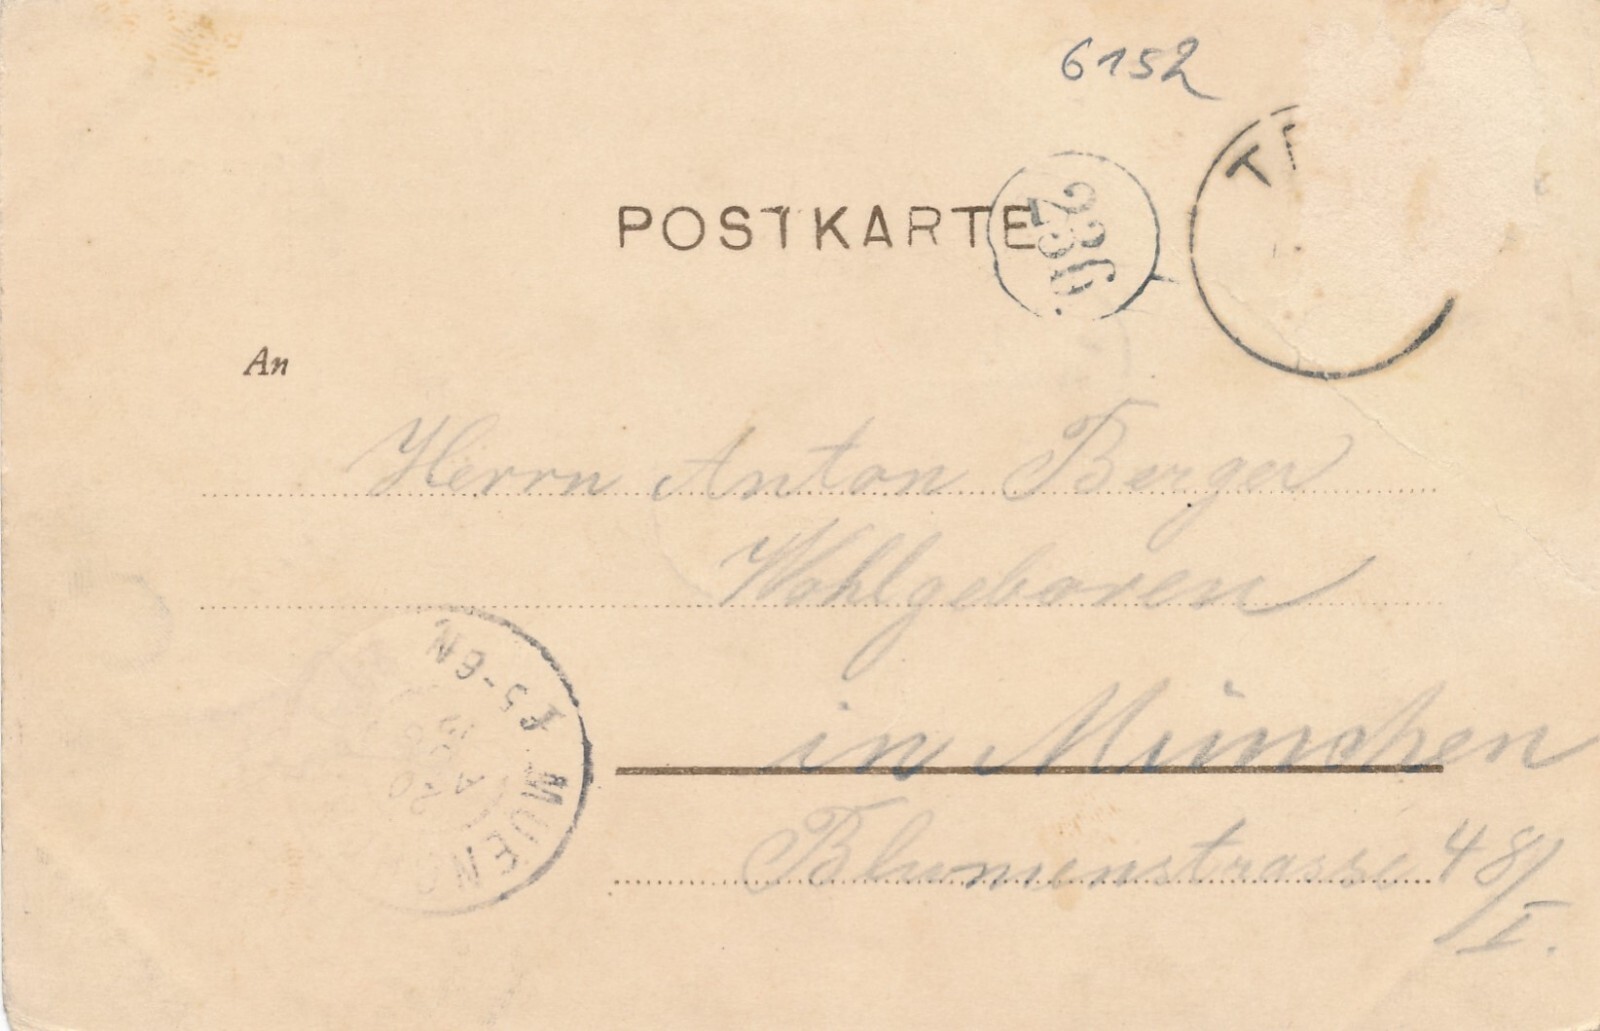 6152
TR
POSTKARTE
236.
An
Herrn Anton Berger
Wohlgeboren
in München
Blumenstrasse 48/I.
MUENC
I
5-6N